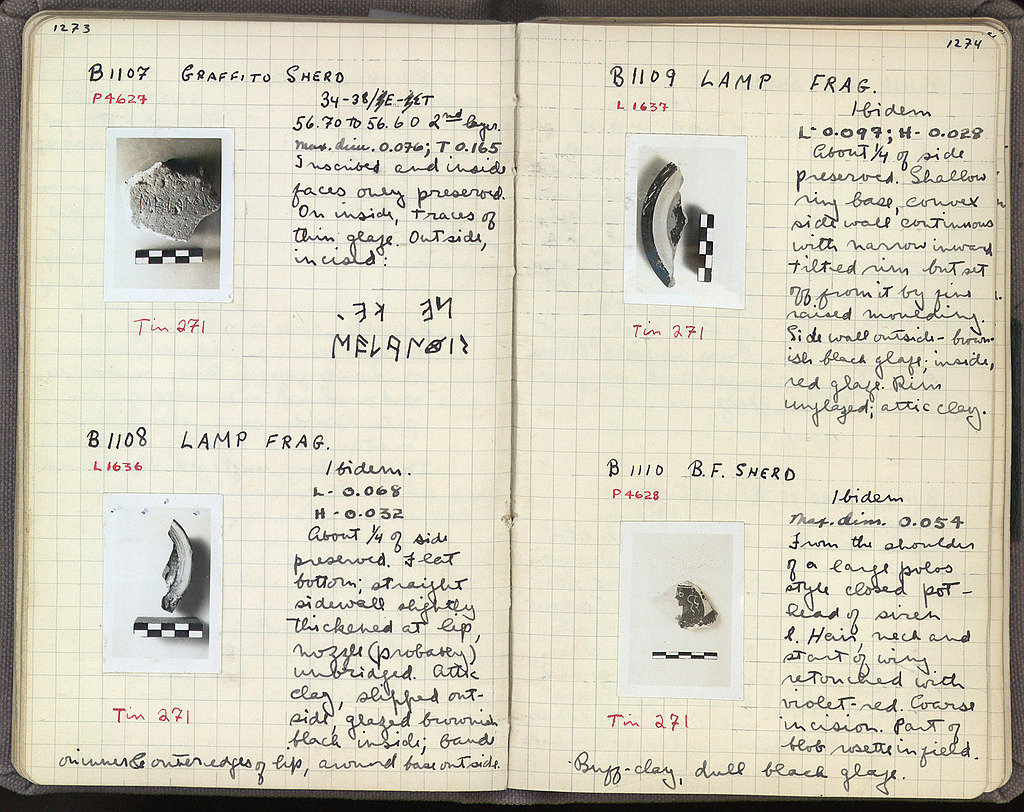 1273
B 1107 GRAFFITO SHERD
P 4627
34-38/
56.70 TO 56.60 2nd layer.
Max. dim. 0.076; T 0.165
Inscribed and inside
faces only preserved.
On inside, traces of
thin glaze. Outside,
incised:
MELANOIS
Tin 271
B 1108 LAMP FRAG.
L 1636
Ibidem.
L- 0.068
H- 0.032
About 1/4 of side
preserved. Flat
bottom; straight
sidewall slightly
thickened at lip,
nozzle (probably)
unbridged. Attic
clay, slipped out-
side, glazed brownish
black inside; bands
on inner & outer edges of lip, around base outside.
Tin 271
1274
B 1109 LAMP FRAG.
L 1637
Ibidem
L- 0.097; H- 0.028
About 1/4 of side
preserved. Shallow
ring base, convex
side wall continuous
with narrow inward
tilted rim but set
off from it by fine
raised moulding.
Side wall outside - brown-
ish black glaze; inside,
red glaze. Rim
unglazed; attic clay.
Tin 271
B 1110 B.F. SHERD
P 4628
Ibidem
Max. dim. 0.054
From the shoulder
of a large polos
style closed pot -
head of siren
l. Hair, neck and
start of wing
retouched with
violet-red. Coarse
incision. Part of
blob rosette in field.
Buff-clay, dull black glaze.
Tin 271